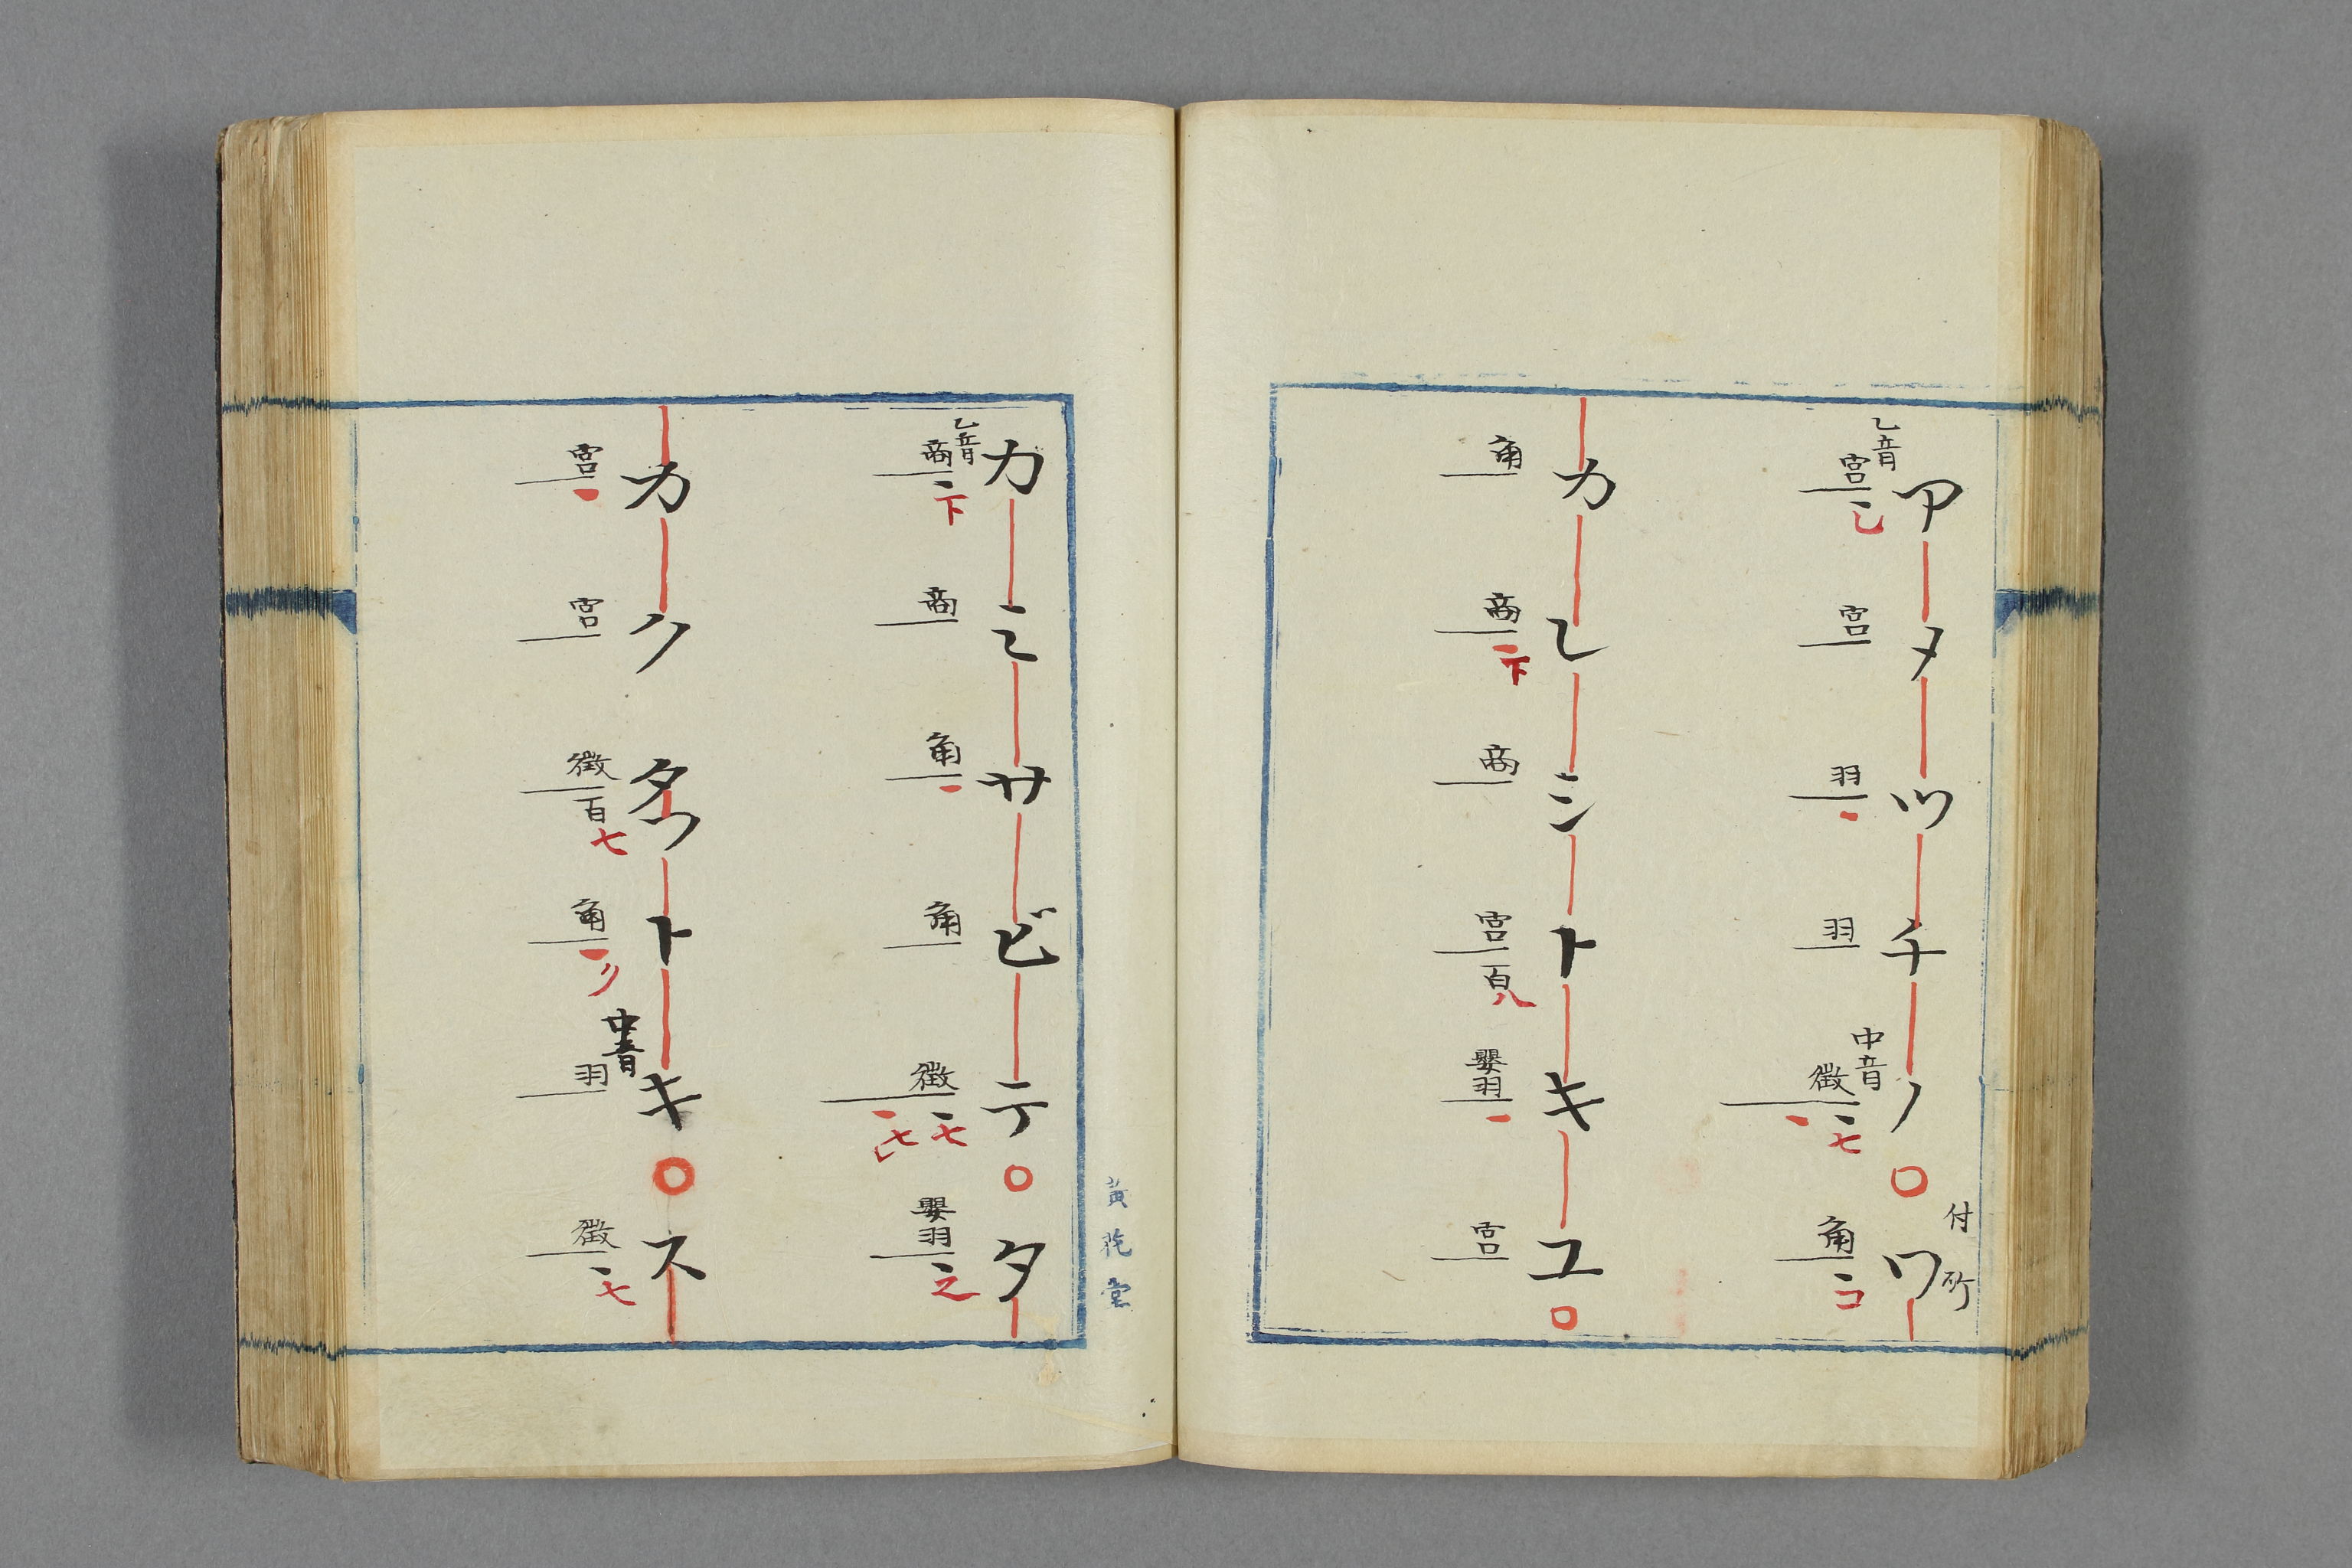 付所
アメツチノ〇ワ
乙音 中音
宮 宮 羽 羽 徴七 角コ
カレシトキユ〇
角 商下 商 宮百八 嬰羽 宮
カミサビテ〇タ
乙音
商下 商 角 角 徴七七 嬰羽之
カクタフトキ〇ス
中音
宮 宮 徴百七 角 羽 徴七